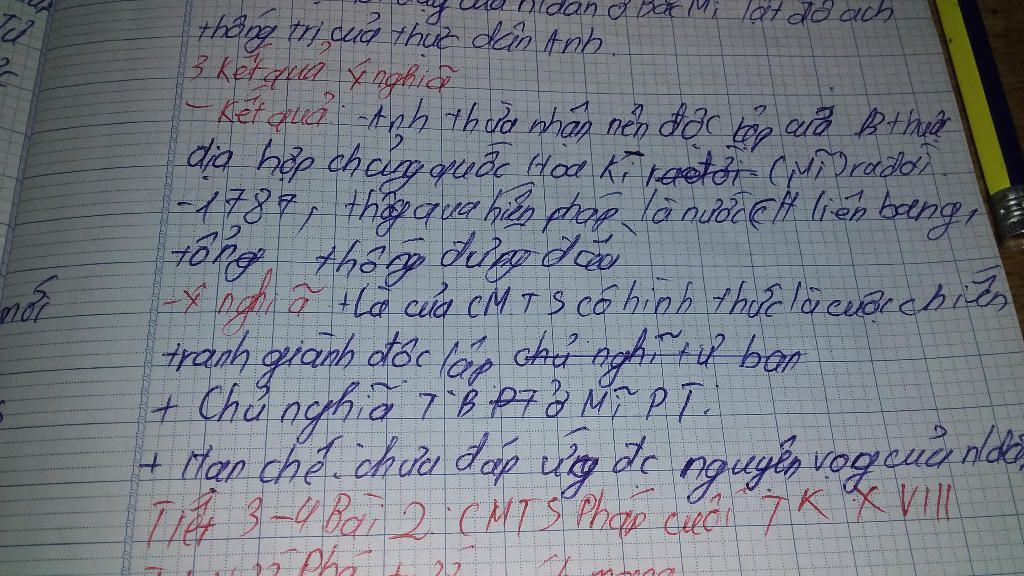 của n/dân ở Bắc Mĩ lật đổ ách
thống trị của thực dân Anh.
3 Kết quả ý nghĩa
- Kết quả: - Anh thừa nhận nền độc lập của 13 thuộc
địa hợp chủng quốc Hoa Kì ra đời (Mĩ) ra đời.
- 1787, thông qua hiến pháp, là nước CH liên bang,
tổng thống đứng đầu
- Ý nghĩa + Là cuộc CMTS có hình thức là cuộc chiến
mới
tranh giành độc lập chủ nghĩ tư bản
+ Chủ nghĩa TB PT ở Mĩ PT.
+ Hạn chế: chưa đáp ứng đc nguyện vọg của n/dân
Tiết 3-4 Bài 2: CMTS Pháp cuối TK XVIII